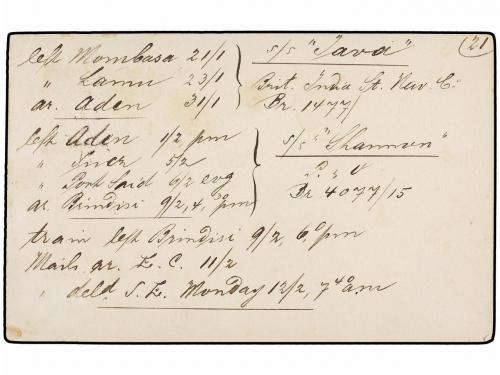 21
left Mombasa 21/1 s/s "Java"
" Lamu 23/1 Brit. India St. Nav. Co.
ar. Aden 31/1 Br. 1477/
left Aden 1/2 pm s/s "Shannon"
" Suez 5/2 P. & O
" Port Said 6/2 evg Br 4077/15
ar. Brindisi 9/2, 4.30 pm
train left Brindisi 9/2, 6.0 pm
Mails ar. E. C. 11/2
" deld S. E. Monday 12/2, 7.40 am